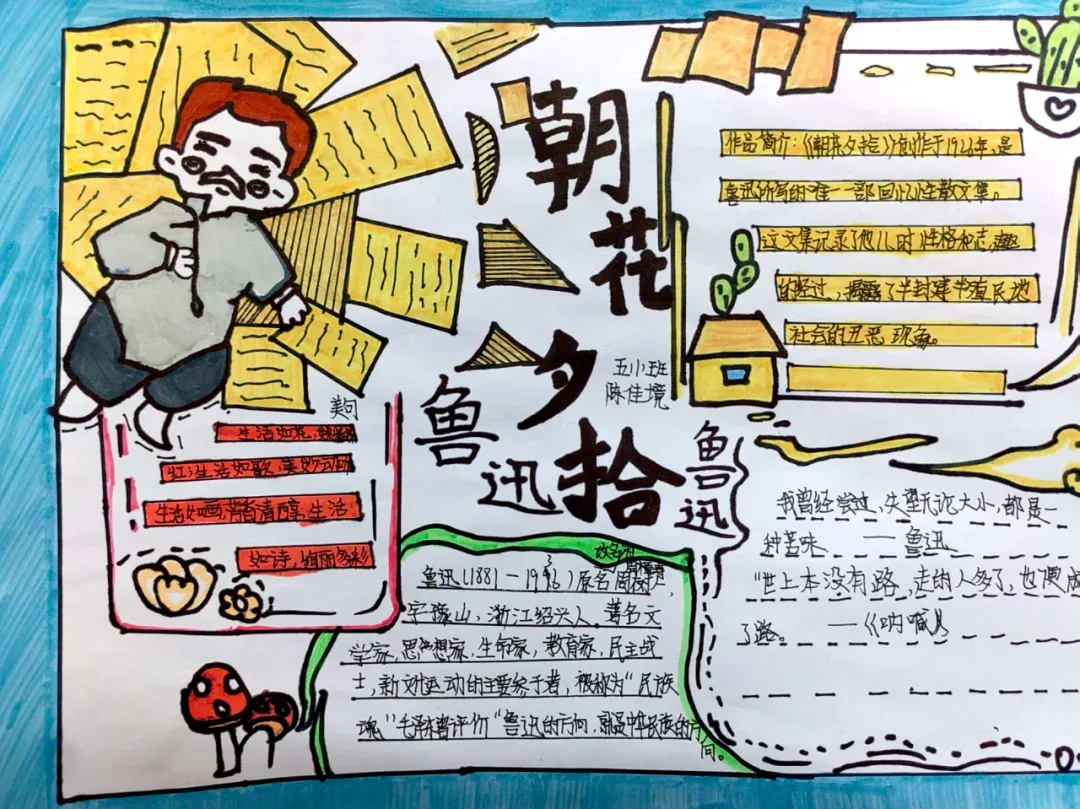 朝花夕拾
鲁迅
五小班
陈佳境
作品简介:《朝花夕拾》创作于1926年,是
鲁迅所写的唯一一部回忆性散文集。
这文集记录了他儿时性格和志趣
的经过,揭露了半封建半殖民地
社会的丑恶现象。
美句
生活如花,
红;生活如歌,美妙动听
生活如画,书香清醇,生活
如诗,绚丽多彩
鲁迅
我曾经尝过,失望无论大小,都是一
种苦味 ——鲁迅
"世上本没有路,走的人多了,也便成
了路。 ——《呐喊》
鲁迅(1881-1936)原名周
字豫山,浙江绍兴人,著名文
学家,思想家,生命家,教育家,民主战
士,新文化运动的主要参于者,被称为"民族
魂"毛泽东曾评价"鲁迅的方向,就是中华民族的方
向。